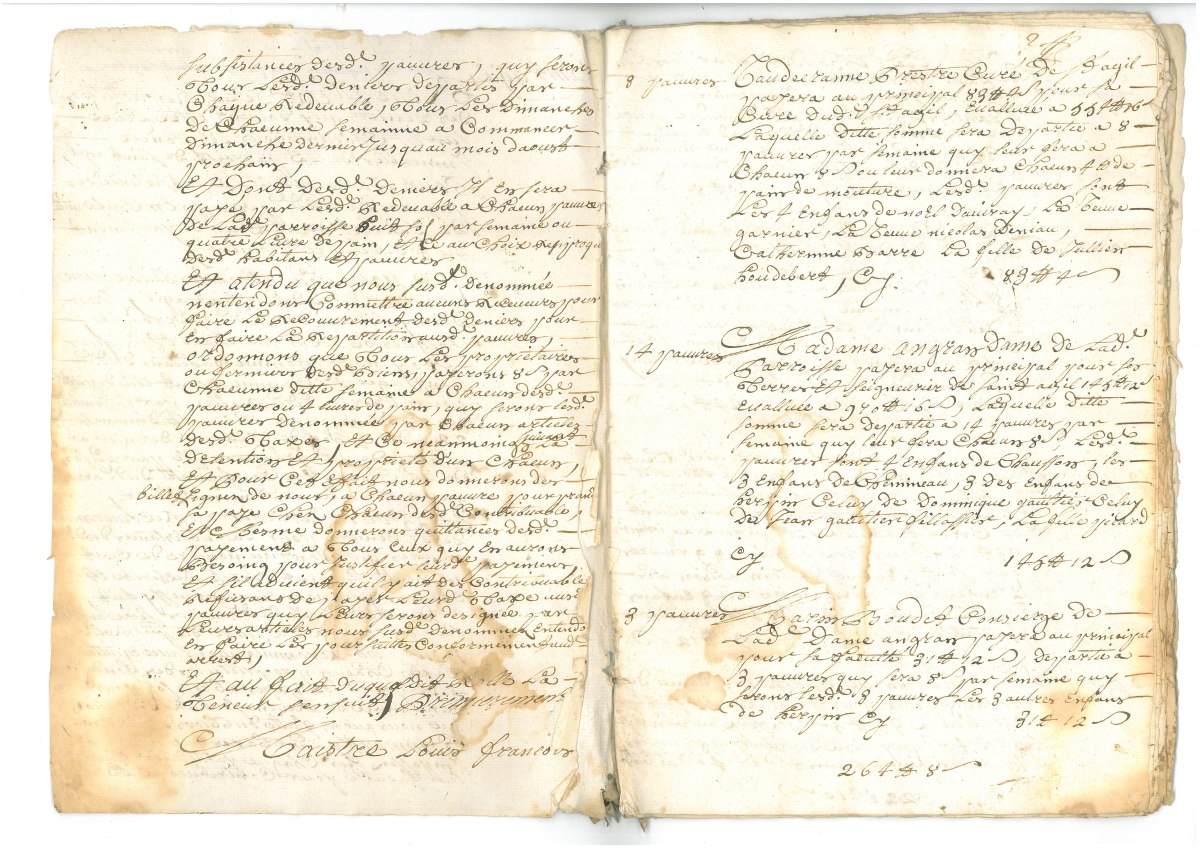 subsistances desd. pauvres, quy seront
tous lesd. deniers departis par
Chaque Redevable, tous Les Dimanches
de Chacunne semainne a Commancer
Dimanche dernier Jusquau mois daoust
prochain,
Et dont desd. deniers Il en sera
paye par Lesd. Redevable a Chacun pauvre
de Lad. parroisse huit s. par semaine ou
quatre Livre de pain, Et Ce au Choix
desd. habitans Et pauvres
Et atendu que nous susd. denommée
nentendons Commettre aucuns Receveurs pour
faire Le Recouvrement desd. deniers pour
En faire La Repartition ausd. pauvres,
ordonnons que tous Les proprietaires
ou fermiers desd. biens, payerons 8 s par
Chacunne ditte semaine a Chacun desd.
pauvres ou 4 livres de pain, quy serons lesd.
pauvres denommée par Chacun articles
desd. taxes, Et Ce neanmoings suivant La
detention Et propriété d'un Chacun,
Et Pour Cet Effait nous donnerons des
billets signer de nous, a Chacun pauvre pour
sa paye Chez Chacun desd. Contribuable,
Et mesme donnerons quittances desd.
payement a tous Ceux quy En aurons
besoing pour Justifier leurd. payement,
Et sil advient quil y ait des Contribuable
Refusans de payer Leurd. taxe aux
pauvres quy Leurs serons designée par
Leurs articles nous susd. denommée Entendons
En faire Les poursuites Conformement aud.
arrest,
Et au fait duquel dit Rolle La
teneur sensuit, Premierement
Maistre Louis francois
8 pauvres
Taudecranne Prestre Curé De St agil
payera au principal 83# 4 s pour sa
Cure dud. St agil, Evalluée a 554# 16 s
Laquelle ditte somme sera departie a 8
pauvres par semaine quy leur fera a
Chacun 8 s ou leur donnera Chacun 4# de
pain de mouture, Lesd. pauvres sont
Les 4 Enfans de noël dauvray, La veuve
garnier, La Veuve nicolas Deniau,
Catherinne barré La fille de Jullien
houdebert, Cy. 83# 4 s
14 pauvres
Madame angran Dame de Lad.
Parroisse payera au principal pour ses
terres Et Seigneurie de Saint agil 145# 12
Evalluée a 970# 16 s, Laquelle ditte
somme sera departie a 14 pauvres par
semaine quy leur fera Chacun 8 s Lesd.
pauvres sont 4 Enfans de Chausson, les
3 Enfans de Chemineau, 3 des Enfans de
herpin Celuy de Dominique gaultier Celuy
de Jean gaultier filassier, La fille picard
Cy 145# 12 s
3 pauvres
Marin boudet Consierge de
Lad. Dame angran payera au principal
pour sa faculté 31# 12 s, departie a
3 pauvres quy fera 8 s par semaine quy
serons lesd. 3 pauvres Les 3 autres Enfans
de herpin Cy 31# 12 s
264# 8 s